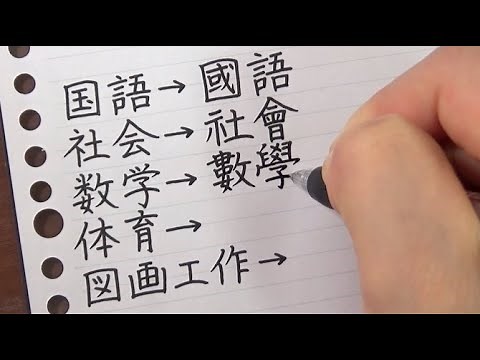 国語→國語
社会→社會
数学→數學
体育→
図画工作→